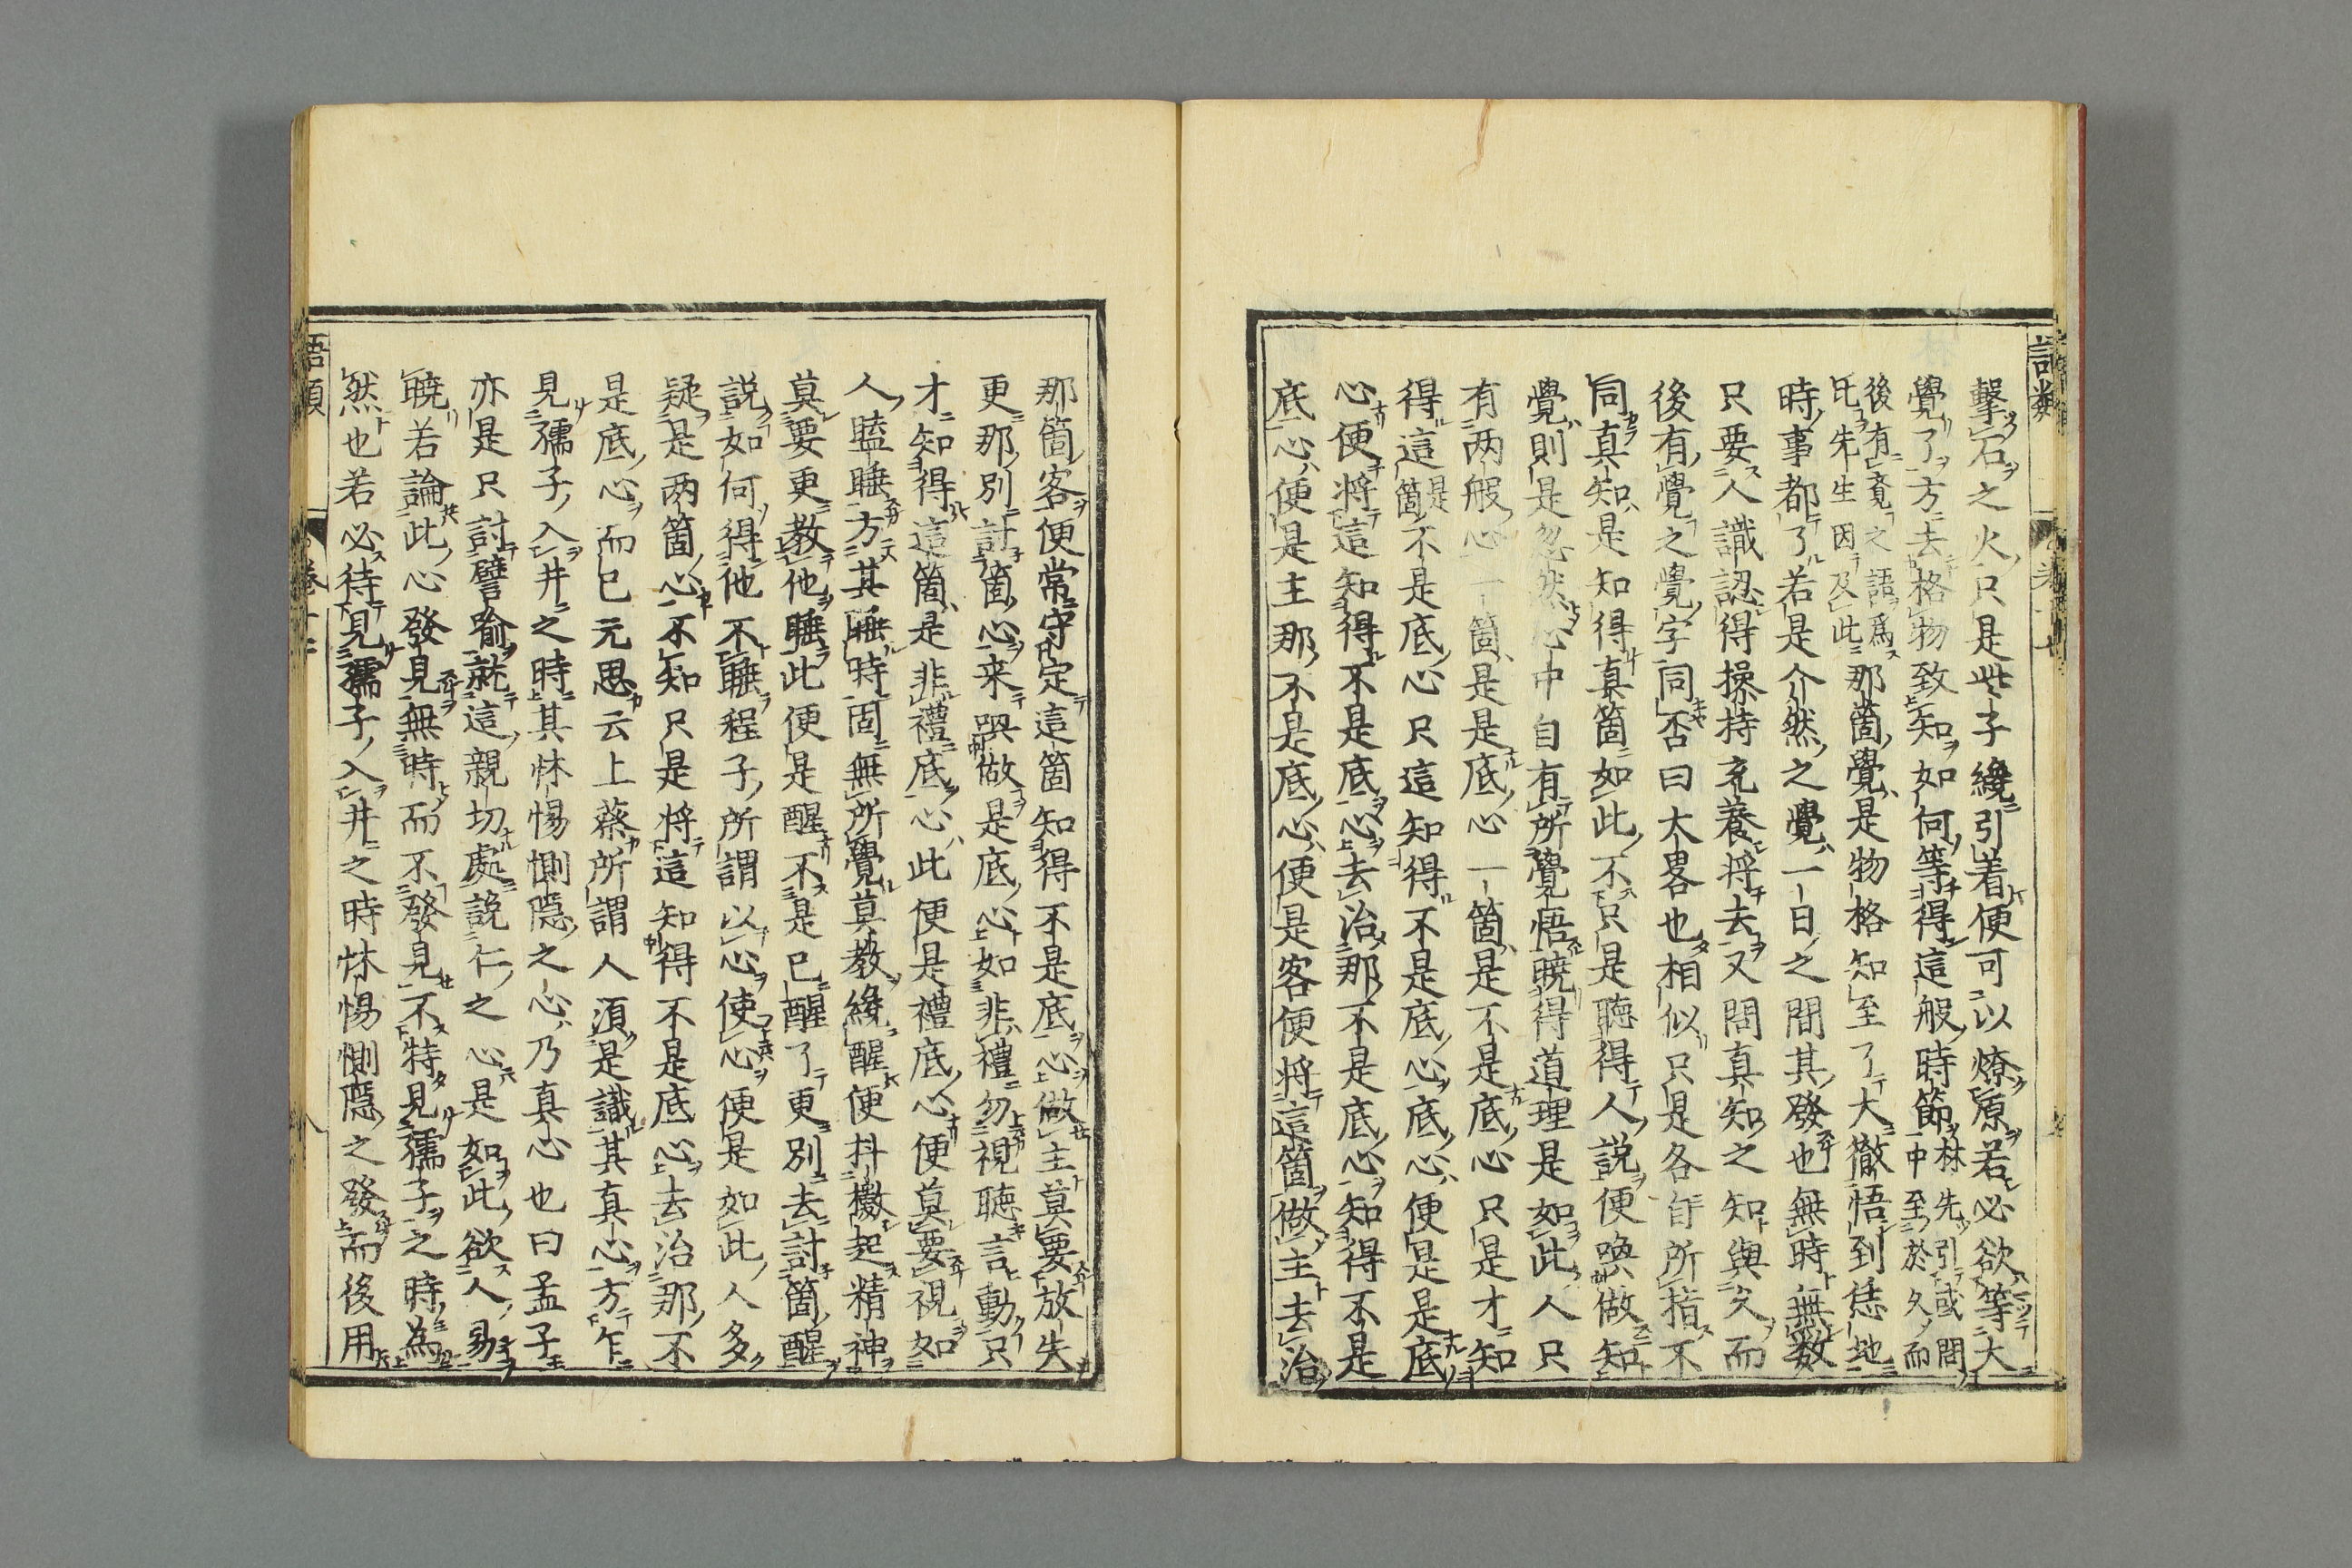 語類
擊石之火只是些子纔引着便可以燎原若必欲等大
覺了方去格物致知如何等得這般時節林先引或問
中至於久而
後有覺之語爲
比先生因及此那箇覺是物格知至了大徹悟到恁地
時事都了若是介然之覺一日之間其發也無時無數
只要人識認得操持充養將去又問真知之知與久而
後有覺之覺字同否曰大畧也相似只是各自所指不
同真知是知得真箇如此不只是聽得人說便喚做知
覺則是忽然心中自有所覺悟曉得道理是如此人只
有两般心一箇是是底心一箇是不是底心只是才知
得這箇是不是底心只這知得不是底心底心便是是底
心便將這知得不是底心去治那不是底心知得不是
底心便是主那不是底心便是客便將這箇做主去治
那箇客便常守定這箇知得不是底心做主莫要放失
更那別討箇心来喚做是底心如非禮勿視聽言動只
才知得這箇是非禮底心此便是禮底心便莫要視如
人瞌睡方其睡時固無所覺莫教纔醒便抖擻起精神
莫要更教他睡此便是醒不是已醒了更別去討箇醒
說如何得他不睡程子所謂以心使心便是如此人多
疑是两箇心不知只是將這知得不是底心去治那不
是底心而已元思云上蔡所謂人須是識其真心方乍
見孺子入井之時其怵惕惻隱之心乃真心也曰孟子
亦是只討譬喻就這親切處說仁之心是如此欲人易
曉若論此心發見無時而不發見不特見孺子之時為
然也若必待見孺子入井之時怵惕惻隱之發而後用
語類 卷十七 八